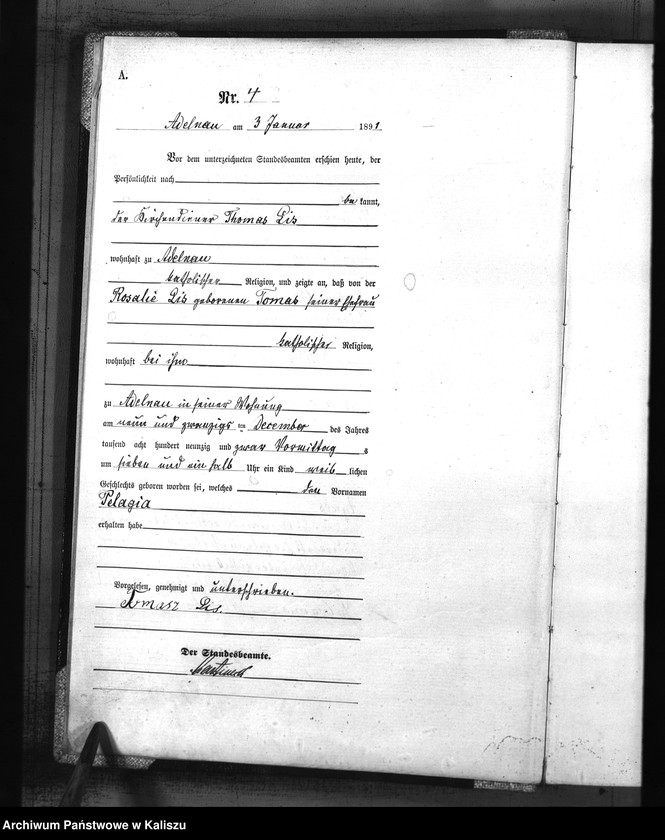 A.
Nr. 4
Adelnau am 3 Januar 1891
Vor dem unterzeichneten Standesbeamten erschien heute, der
Persönlichkeit nach
be kannt,
der Kirchendiener Thomas Lis
wohnhaft zu Adelnau
katholischer Religion, und zeigte an, daß von der
Rosalie Lis geborenen Tomas seiner Ehefrau
katholischer Religion,
wohnhaft bei ihm
zu Adelnau in seiner Wohnung
am neun und zwanzigsten December des Jahres
tausend acht hundert neunzig und zwar Vormittag s
um sieben und ein halb Uhr ein Kind weib lichen
Geschlechts geboren worden sei, welches den Vornamen
Pelagia
erhalten habe
Vorgelesen, genehmigt und unterschrieben.
Tomasz Lis.
Der Standesbeamte.
Archiwum Państwowe w Kaliszu